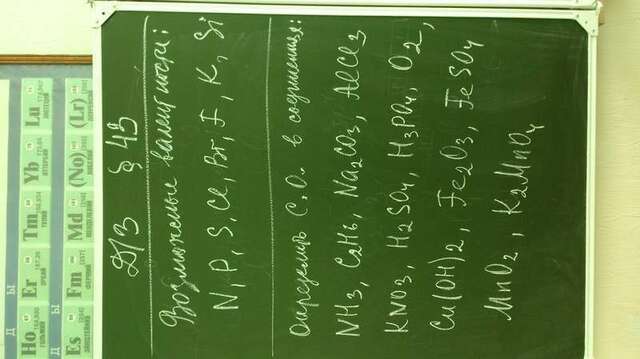 Д/З § 43
Возможные валентности:
N, P, S, Cl, Br, F, K, Si
Определить С.О. в соединениях:
NH3, C2H6, Na2CO3, AlCl3
KNO3, H2SO4, H3PO4, O2,
Cu(OH)2, Fe2O3, FeSO4
MnO2, K2MnO4
Lu
(Lr)
Yb
(No)
Tm
Md
Er
Fm
Ho
Es